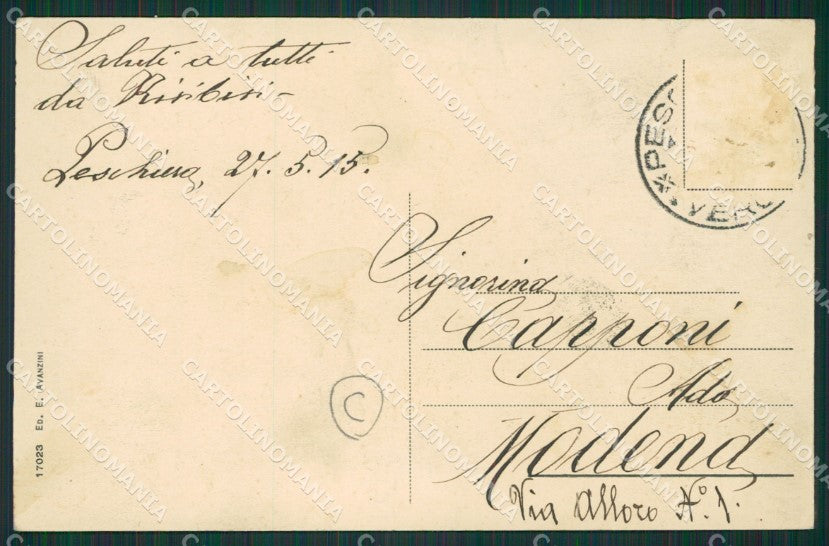 Saluti a tutti
da Kiribiri
Peschiera, 27.5.15.
PESC
VERO
Signorina
Capponi
Ada
Modena
Via Alloro N.° 1.
C
17023 ED. E. AVANZINI
CARTOLINOMANIA